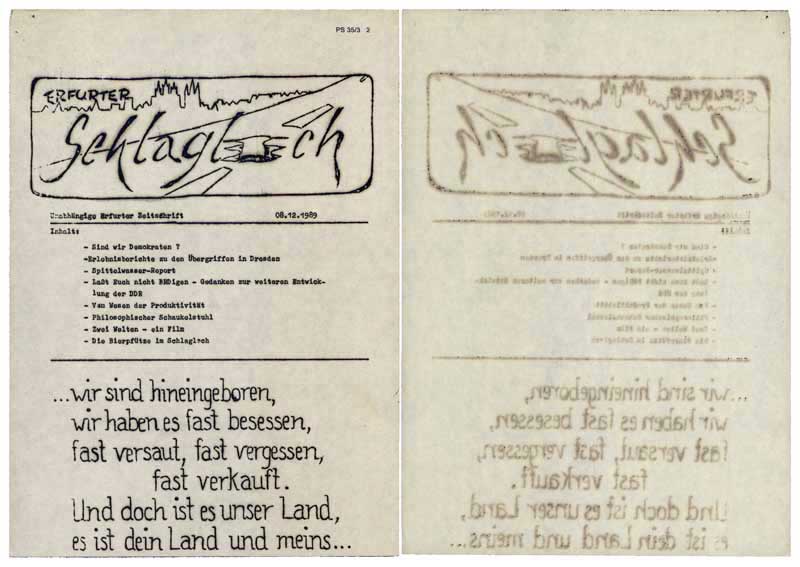 PS 35/3 2
ERFURTER
Schlagloch
Unabhängige Erfurter Zeitschrift 08.12.1989
Inhalt:
- Sind wir Demokraten ?
-Erlebnisberichte zu den Übergriffen in Dresden
- Spittelwasser-Report
- Laßt Euch nicht BRDigen - Gedanken zur weiteren Entwick-
lung der DDR
- Vom Wesen der Produktivität
- Philosophischer Schaukelstuhl
- Zwei Welten - ein Film
- Die Bierpfütze im Schlagloch
...wir sind hineingeboren,
wir haben es fast besessen,
fast versaut, fast vergessen,
fast verkauft.
Und doch ist es unser Land,
es ist dein Land und meins...